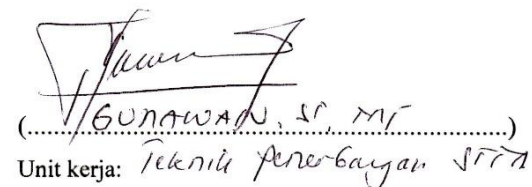 (GUNAWAN, ST, MT)
Unit kerja: Teknik Penerbangan STTA